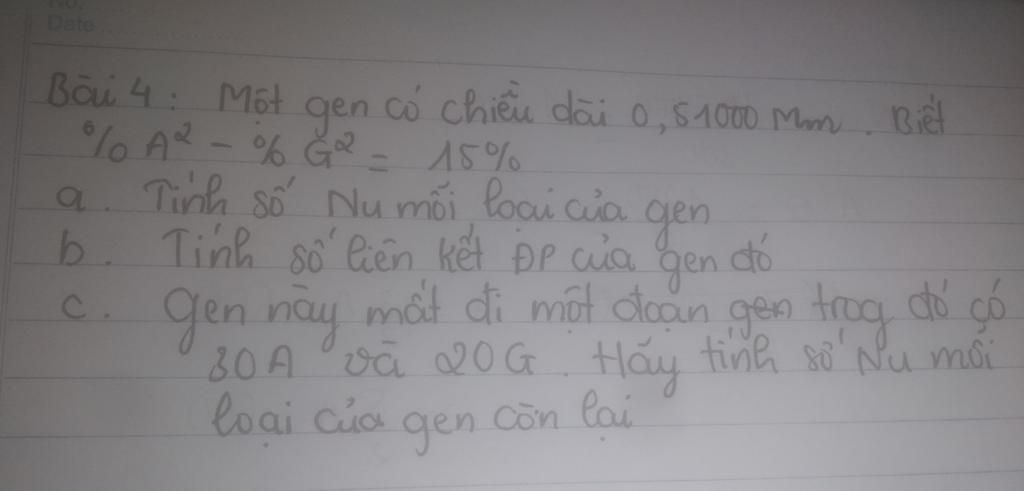 No.
Date
Bài 4: Một gen có chiều dài 0,51000 Mm. Biết
% A² - % G² = 15%
a. Tính số Nu mỗi loại của gen
b. Tính số liên kết ĐP của gen đó
c. Gen này mất đi một đoạn gen trog đó có
30A và 20G. Hãy tính số Nu mỗi
loại của gen còn lại